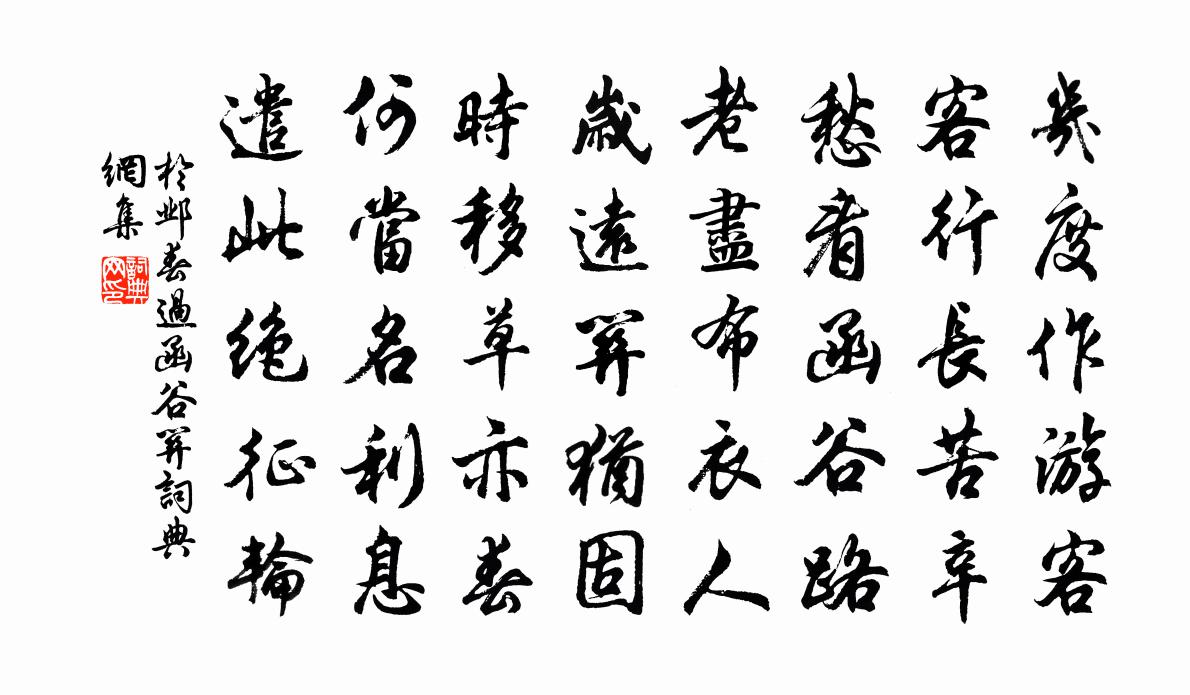 幾度作游客
客行長苦辛
愁看函谷路
老盡布衣人
歲遠關猶固
時移草亦春
何當名利息
遣此絕征輪
於鄴春過函谷關詞典
網集
詞典
网印